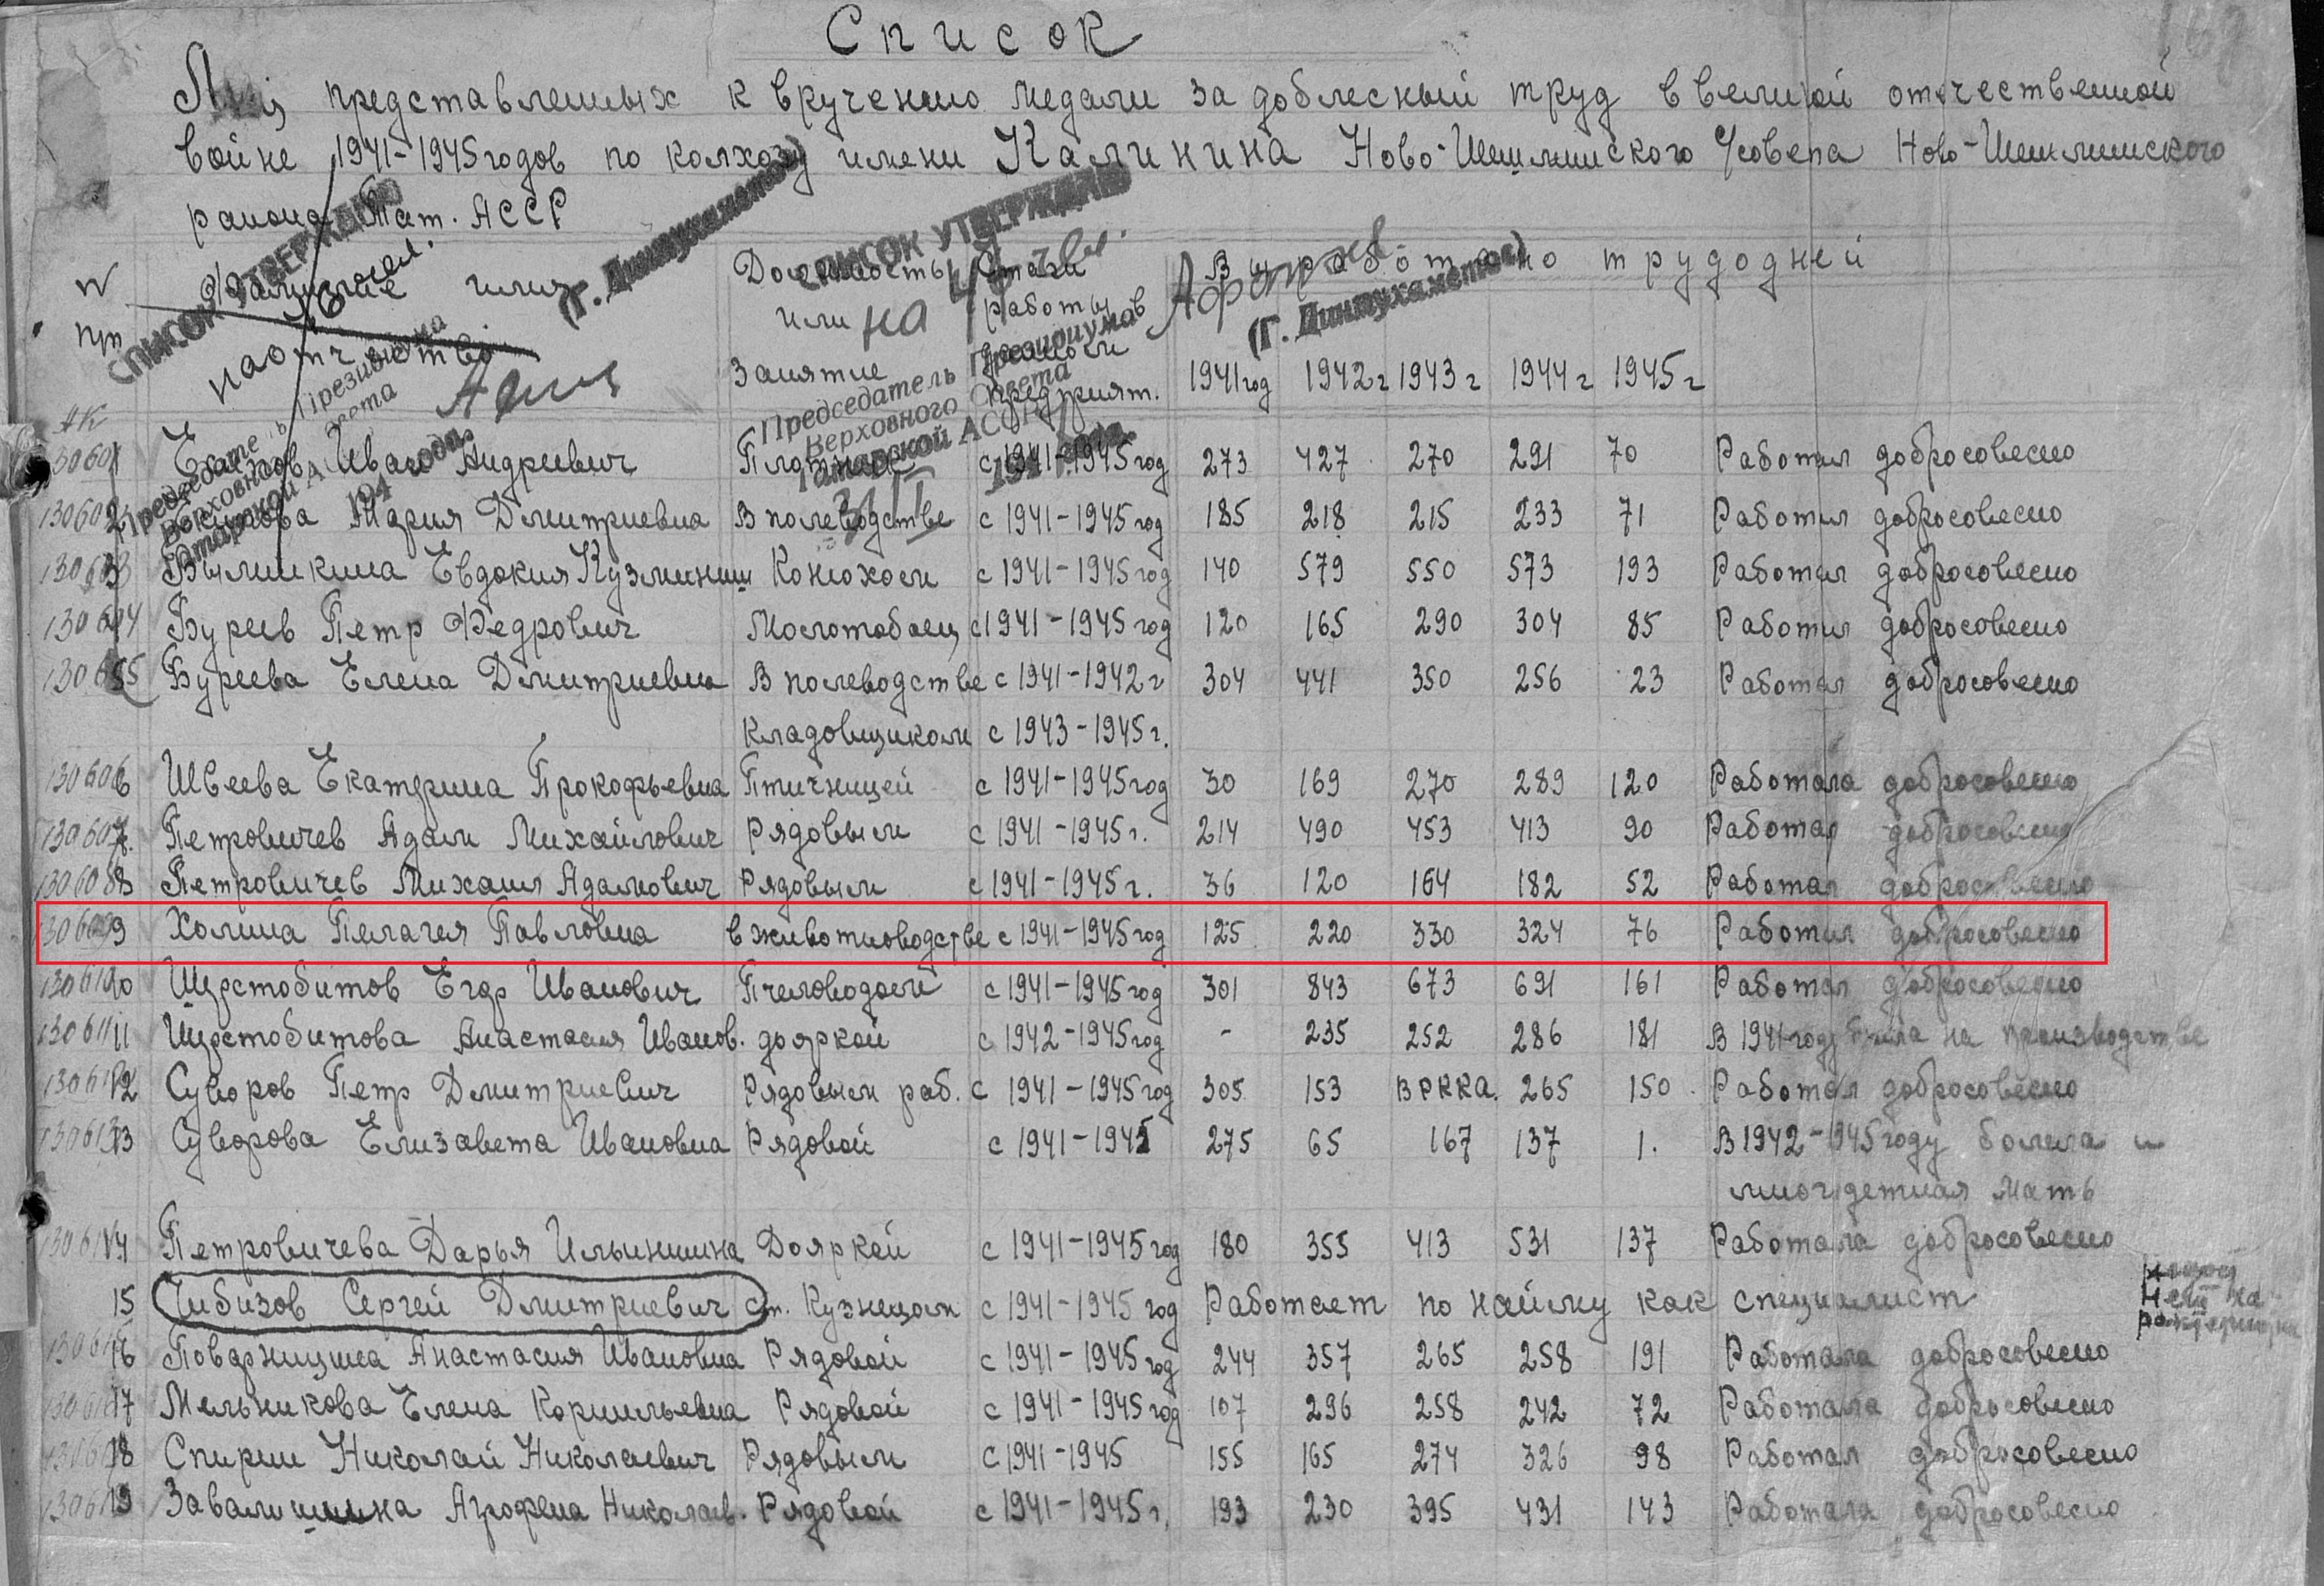 Список
Лиц представленных к вручению медали за доблесный труд в великой отечественной
войне 1941-1945 годов по колхозу имени Калинина Ново-Шешминского с/совета Ново-Шешминского
района Тат. АССР
N пп Фамилие имя на отчество Должность или Занятие Стаж работы в данном предприят. Выработано трудодней
1941 год 1942 г 1943 г 1944 г 1945 г
СПИСОК УТВЕРЖДАЮ
Председатель Президиума
Верховного Совета
Татарской АССР
194 года.
(Г. Динмухаметов)
СПИСОК УТВЕРЖДАЮ
на 48 чел.
Председатель Президиума
Верховного Совета
Татарской АССР
194 года.
(Г. Динмухаметов)
АК
Иван Андреевич Плотником с 1941-1945 год 273 427 270 291 70 Работал добросовесно
130602 Мария Дмитриевна В полеводстве с 1941-1945 год 185 218 215 233 71 Работал добросовесно
130603 Вылишкина Евдокия Кузминиш Конюхом с 1941-1945 год 140 579 550 573 193 Работал добросовесно
130604 Буреев Петр Федрович Молотобоец с 1941-1945 год 120 165 290 304 85 Работал добросовесно
130605 Буреева Елена Дмитриевна В полеводстве с 1941-1942 г 304 441 350 256 23 Работал добросовесно
Кладовщиком с 1943-1945 г.
130606 Швеева Екатерина Прокофьевна Птичницей с 1941-1945 год 30 169 270 289 120 Работала добросовесно
130607 Петровичев Адам Михайлович Рядовым с 1941-1945 г. 214 490 453 413 90 Работал добросовесно
130608 8 Петровичев Михаил Адамович Рядовым с 1941-1945 г. 36 120 164 182 52 Работал добросовесно
130609 9 Холина Пелагея Павловна в животноводстве с 1941-1945 год 125 220 330 324 76 Работал добросовесно
130610 10 Шерстобитов Егор Иванович Пчеловодом с 1941-1945 год 301 843 673 691 161 Работал добросовесно
130611 11 Шерстобитова Анастасия Иванов. дояркой с 1942-1945 год - 235 252 286 181 В 1941 году была на производстве
130612 12 Суворов Петр Дмитриевич Рядовым раб. с 1941-1945 год 305 153 В РККА. 265 150 Работал добросовесно
130613 13 Суворова Елизавета Ивановна Рядовой с 1941-1945 275 65 167 137 1. В 1942-1945 году болела и
многдетная мать
130614 14 Петровичева Дарья Ильинишна Дояркой с 1941-1945 год 180 355 413 531 137 Работала добросовесно
15 Чибизов Сергей Дмитриевич ст. Кузнецом с 1941-1945 год Работает по найму как специалист
16 Поварницина Анастасия Ивановна Рядовой с 1941-1945 год 244 357 265 258 191 Работала добросовесно
17 Мельникова Елена Корнильевна Рядовой с 1941-1945 год 107 296 258 242 72 Работала добросовесно
18 Спирин Николай Николаевич Рядовым с 1941-1945 155 165 274 326 98 Работал добросовесно
19 Завалишина Агрофена Николаев. Рядовой с 1941-1945 г. 193 230 395 431 143 Работала добросовесно